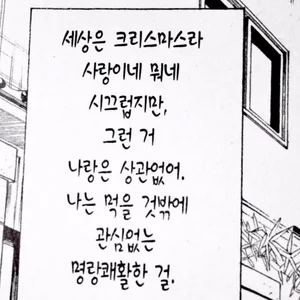 세상은 크리스마스라
사랑이네 뭐네
시끄럽지만,
그런 거
나랑은 상관없어.
나는 먹을 것밖에
관심없는
명랑쾌활한 걸.